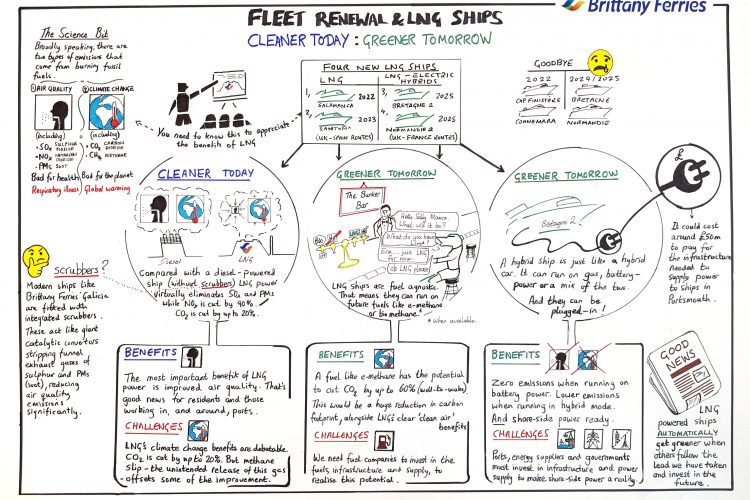 Brittany Ferries
FLEET RENEWAL & LNG SHIPS
CLEANER TODAY : GREENER TOMORROW
The Science Bit
Broadly speaking, there are
two types of emissions that
come from burning fossil
fuels.
① AIR QUALITY
② CLIMATE CHANGE
(including)
• SOx SULPHUR
• NOx
• PMs SOOT
Bad for health
Respiratory illness
(including)
• CO2 CARBON DIOXIDE
• CH4 METHANE
Bad for the planet
Global warming
You need to know this to appreciate
the benefits of LNG
FOUR NEW LNG SHIPS
LNG
1, 2022
SALAMANCA
2, 2023
SANTOÑA
(UK-SPAIN ROUTES)
LNG-ELECTRIC
HYBRIDS
3, 2024
BRETAGNE 2
4, 2025
NORMANDIE 2
(UK-FRANCE ROUTES)
GOODBYE
2022
CAP FINISTERE
CONNEMARA
2024/2025
BRETAGNE
NORMANDIE
CLEANER TODAY
Diesel
LNG
Compared with a diesel-powered
ship (without scrubbers) LNG power
virtually eliminates SOx and PMs
while NOx is cut by 90%.
CO2 is cut by up to 20%.
GREENER TOMORROW
The Bunker
Bar
Hello Sally Manca.
What will it be?
What do you have
Liam?
Erm... just LNG
for now
Ok LNG please
LNG ships are fuel agnostic.
That means they can run on
future fuels like e-methane
or bio methane.*
* when available
GREENER TOMORROW
Bretagne 2
A hybrid ship is just like a hybrid
car. It can run on gas, battery-
power or a mix of the two.
And they can be
plugged-in !
£
It could cost
around £50m
to pay for
the infrastructure
needed to
supply power
to ships in
Portsmouth.
Scrubbers?
Modern ships like
Brittany Ferries' Galicia
are fitted with
integrated scrubbers.
These act like giant
catalytic convertors
stripping funnel
exhaust gases of
sulphur and PMs
(soot), reducing
air quality
emissions
significantly.
BENEFITS
The most important benefit of LNG
power is improved air quality. That's
good news for residents and those
working in, and around, ports.
CHALLENGES
LNG's climate change benefits are debatable.
CO2 is cut by up to 20%. But methane
slip - the unintended release of this gas
- offsets some of the improvement.
BENEFITS
A fuel like e-methane has the potential
to cut CO2 by up to 60% (well-to-wake)
This would be a huge reduction in carbon
footprint, alongside LNG's clear 'clean air'
benefits
CHALLENGES
We need fuel companies to invest in the
fuels, infrastructure and supply, to
realise this potential.
BENEFITS
Zero emissions when running on
battery power. Lower emissions
when running in hybrid mode.
And shore-side power ready.
CHALLENGES
Ports, energy supplies and governments
must invest in infrastructure and power
supply to make shore-side power a reality.
GOOD
NEWS
LNG
powered ships
AUTOMATICALLY
get greener when
others follow the
lead we have taken
and invest in the
future.